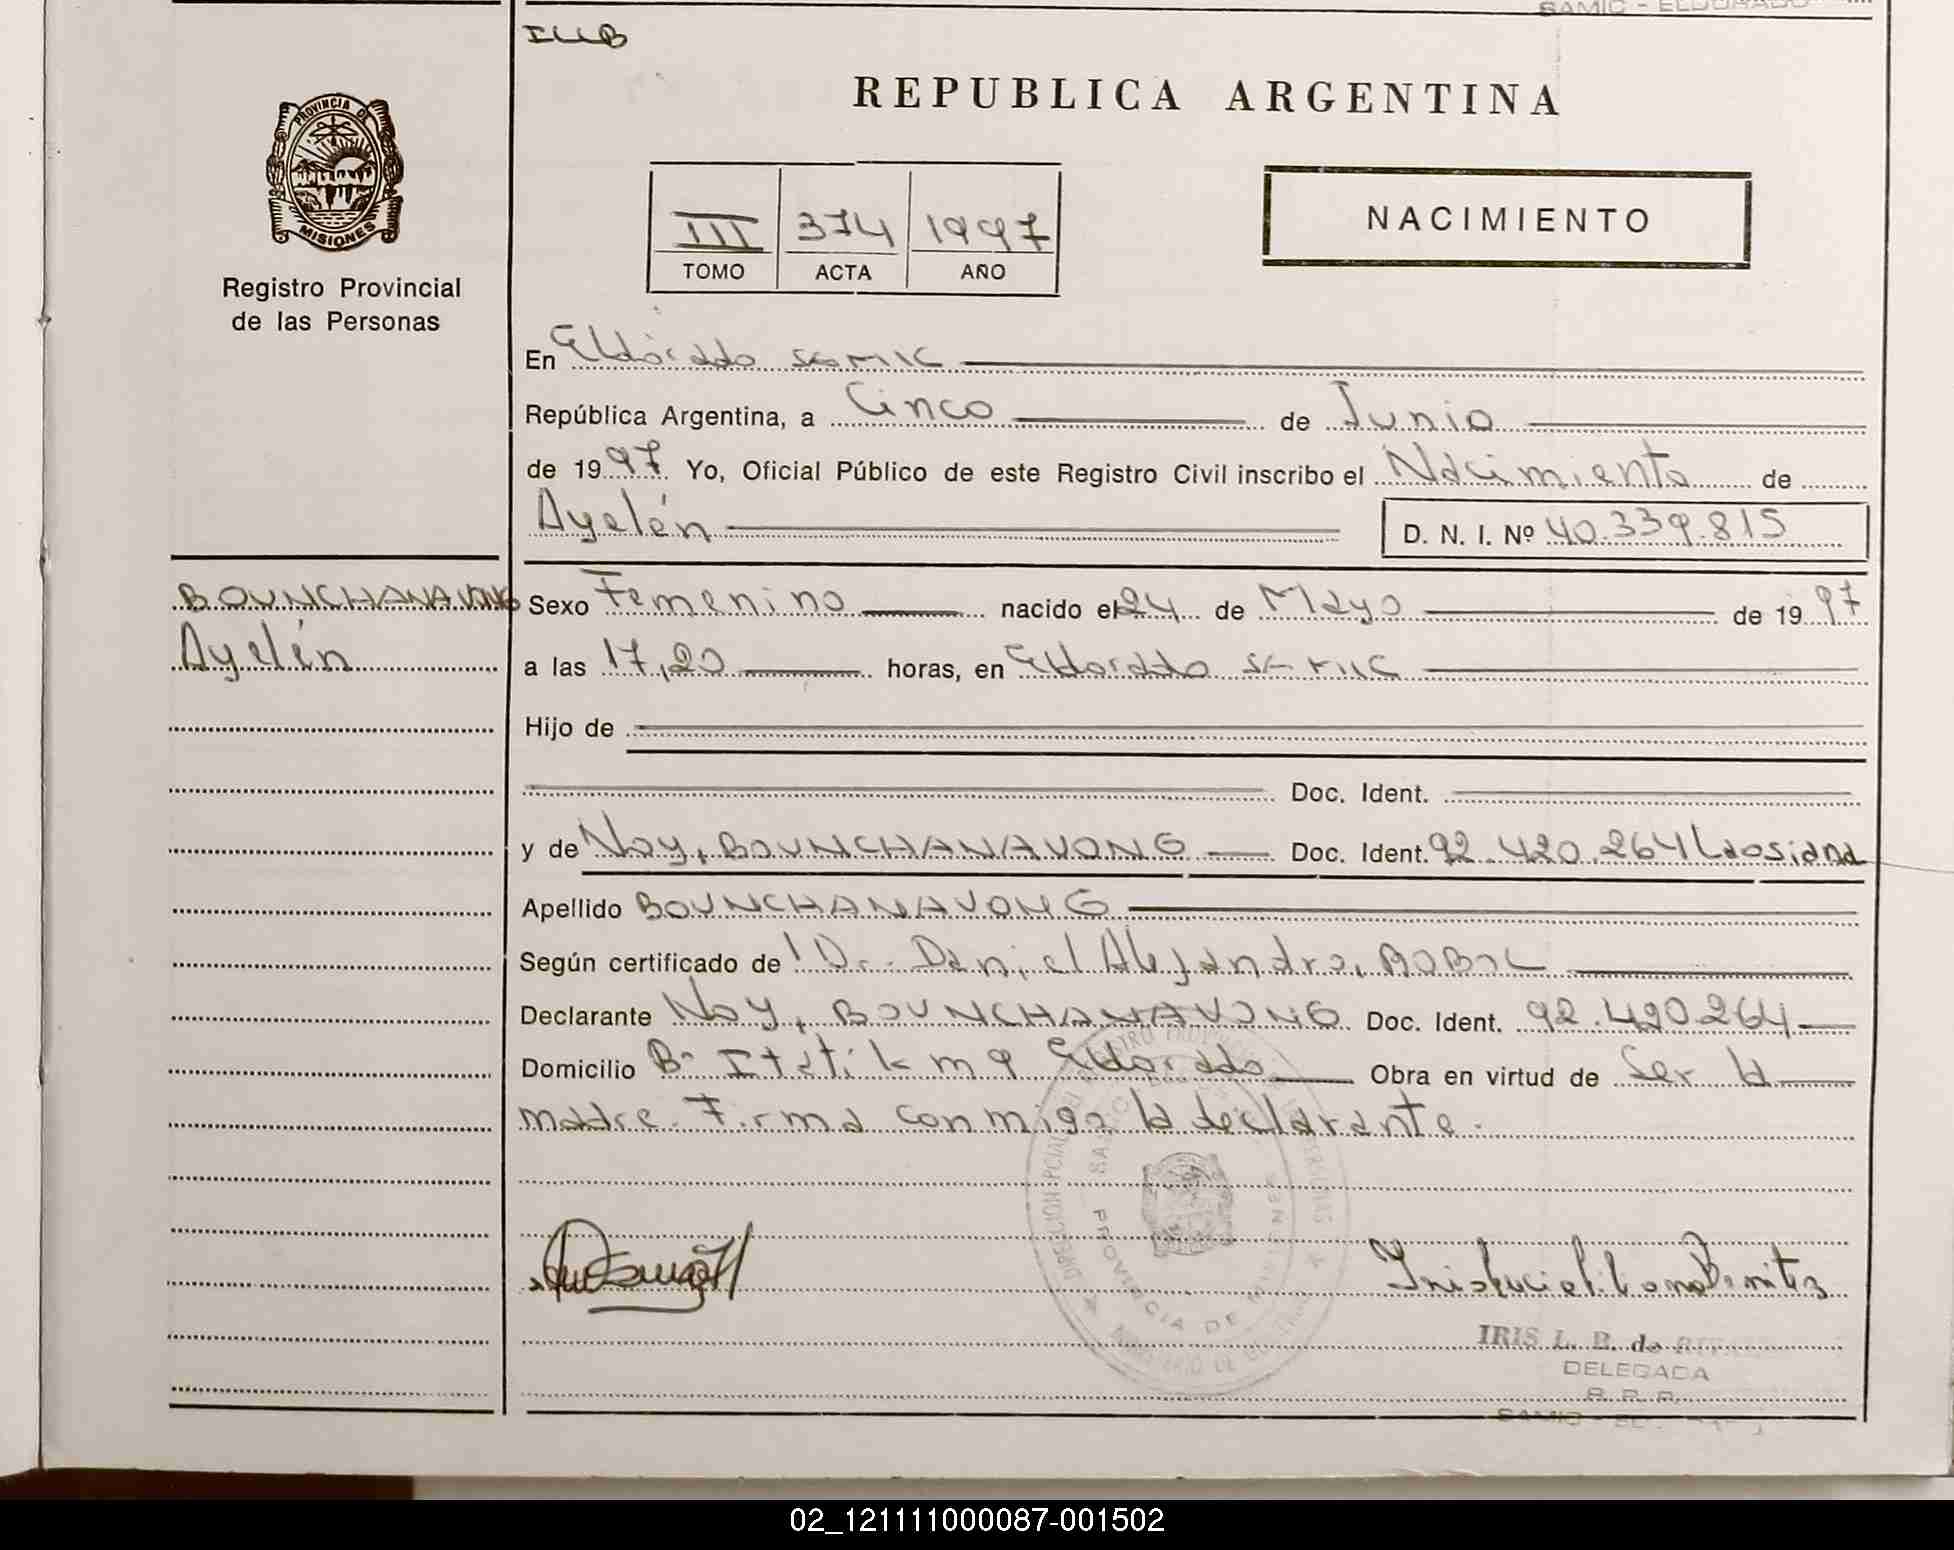 SAMIC - ELDORADO
ILLB
REPUBLICA ARGENTINA
PROVINCIA DE
MISIONES
Registro Provincial
de las Personas
III 374 1997
TOMO ACTA AÑO
NACIMIENTO
En Eldorado SAMIC
República Argentina, a Cinco de Junio
de 1997 Yo, Oficial Público de este Registro Civil inscribo el Nacimiento de
Ayelén D. N. I. Nº 40.339.815
BOUNCHANAVONG
Ayelén
Sexo Femenino nacido el 24 de Mayo de 1997
a las 17,20 horas, en Eldorado SAMIC
Hijo de
Doc. Ident.
y de Noy, BOUNCHANAVONG Doc. Ident. 92.420.264 Laosiana
Apellido BOUNCHANAVONG
Según certificado de Dr. Daniel Alejandro,
Declarante Noy, BOUNCHANAVONG Doc. Ident. 92.420.264
Domicilio Bº Itatí km 9 Eldorado Obra en virtud de Ser la
madre. Firma conmigo la declarante.
PROVINCIA DE MISIONES
IRIS L. B. de
DELEGADA
R. P. P.
SAMIC - EL
02_121111000087-001502